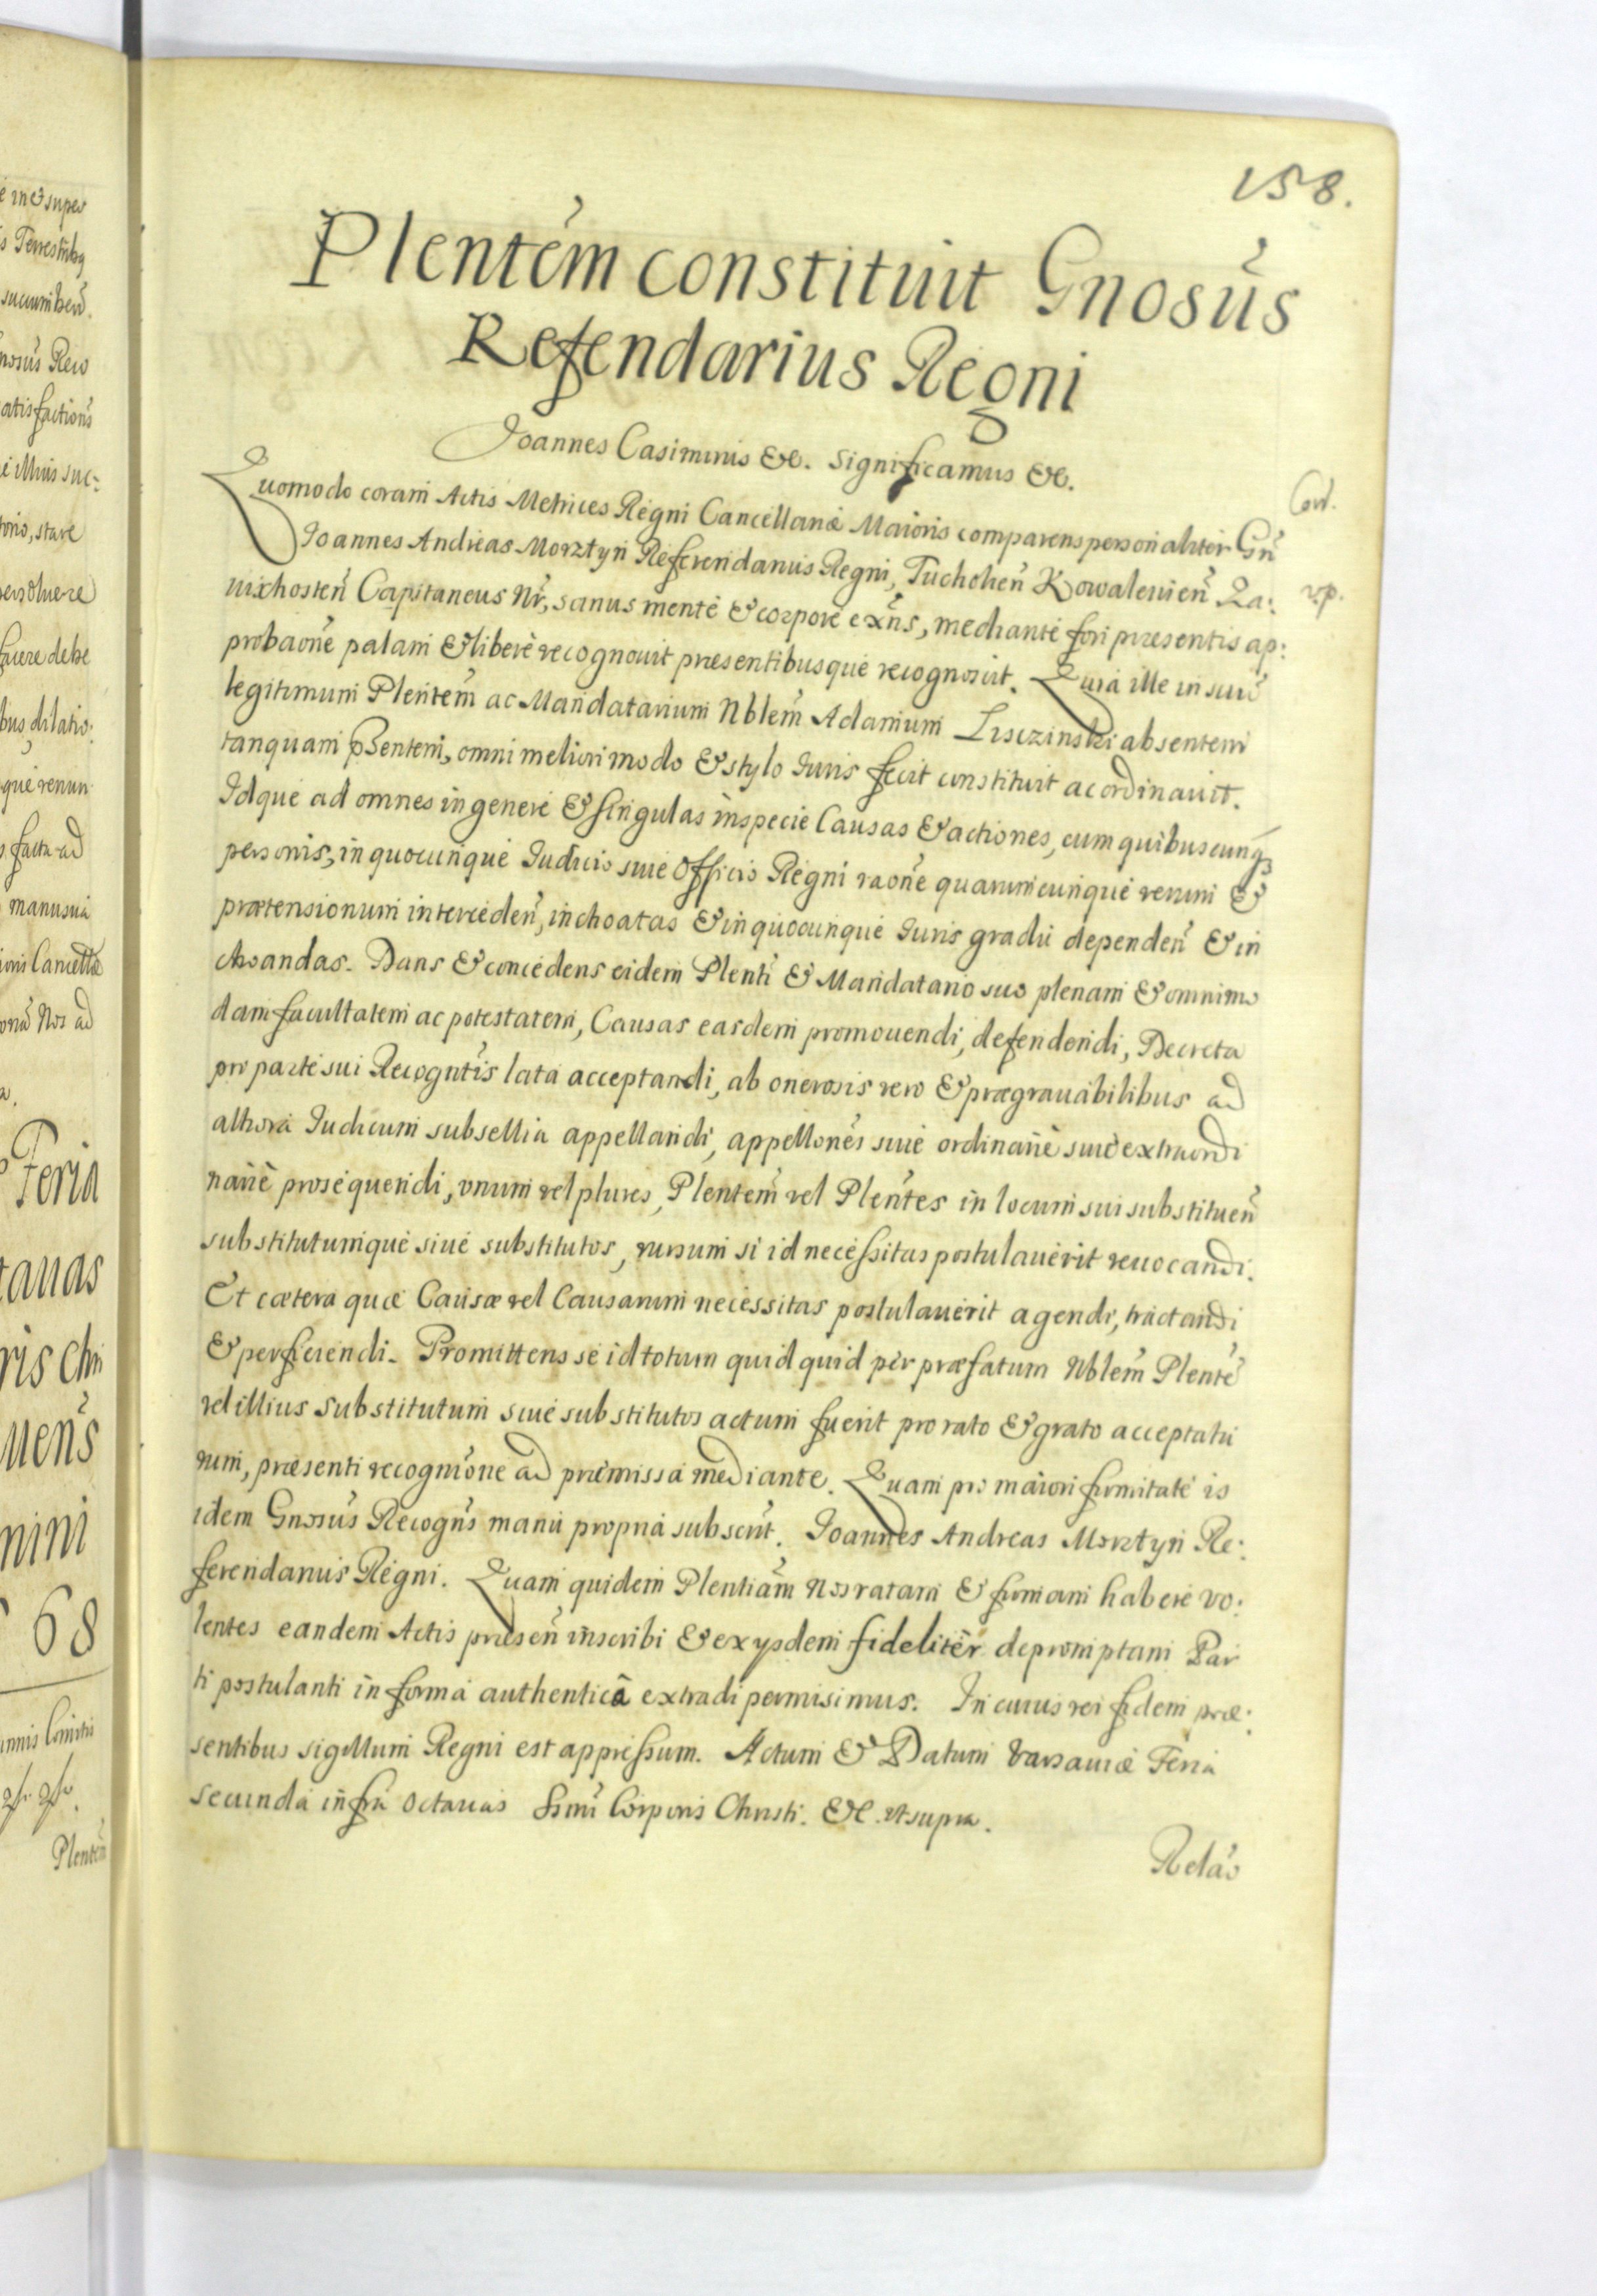 158.
Plentem̃ constituit Gnosus̃
Refendarius Regni
Joannes Casimirus &c. Significamus &c.
Quomodo coram Actis Metrices Regni Cancellariæ Maioris comparens personaliter Gn̄
Joannes Andreas Morztyn Referendarius Regni, Tucholien̄ Kowalevien̄ Za:
vixhosten̄ Capitaneus Nr̄, sanus mente & corpore exn̄s, mediante fori præsentis ap:
probaon̄e palam & liberè recognovit præsentibusque recognoscit. Quia ille in suū
legitimum Plenten̄ ac Mandatarium Nblem̄ Adamum Lisczinski absentem
tanquam pñsentem, omni meliori modo & stylo Iuris fecit constituit ac ordinavit.
Idque ad omnes in genere & singulas in specie Causas & actiones, cum quibuscunq3
personis, in quocunque Iudicio sive Officio Regni raon̄e quarumcunque rerum &
prætensionum interceden̄, inchoatas & in quocunque Iuris gradu dependen̄ & in
choandas. Dans & concedens eidem Plentī & Mandatario suo plenam & omnimo
dam facultatem ac potestatem, Causas easdem promovendi, defendendi, Decreta
pro parte sui Recogntis̄ lata acceptandi, ab onerosis vero & prægravabilibus ad
altiora Iudicum subsellia appellandi, appellones̄ sive ordinariè sive extraordi
nariè prosequendi, vnum vel plures, Plentem̄ vel Plentes̄ in locum sui substituen̄
substitutumque sive substitutos, rursum si id necessitas postulaverit revocandi.
Et cætera quæ Causæ vel Causarum necessitas postulaverit agendi, tractandi
& perficiendi. Promittens se id totum quid quid per præfatum Nblem̄ Plentē
vel illius substitutum sive substitutos actum fuerit pro rato & grato acceptatu
rum, præsenti recognione ad præmissa mediante. Quam pro maiori firmitate is
idem Gnosus̃ Recogns̄ manu propria subscrit̄. Joannes Andreas Morztyn Re:
ferendarius Regni. Quam quidem Plentiam̄ Nos ratam & firmam habere vo:
lentes eandem Actis præsen̄ inscribi & ex ysdem fideliter depromptam Par
ti postulanti in forma authentica extradi permisimus. In cuius rei fidem præ:
sentibus sigillum Regni est appressum. Actum & Datum Varsaviæ Feria
secunda infra Octavas Ssmī Corporis Christi. &c. vt supra.
Relaō